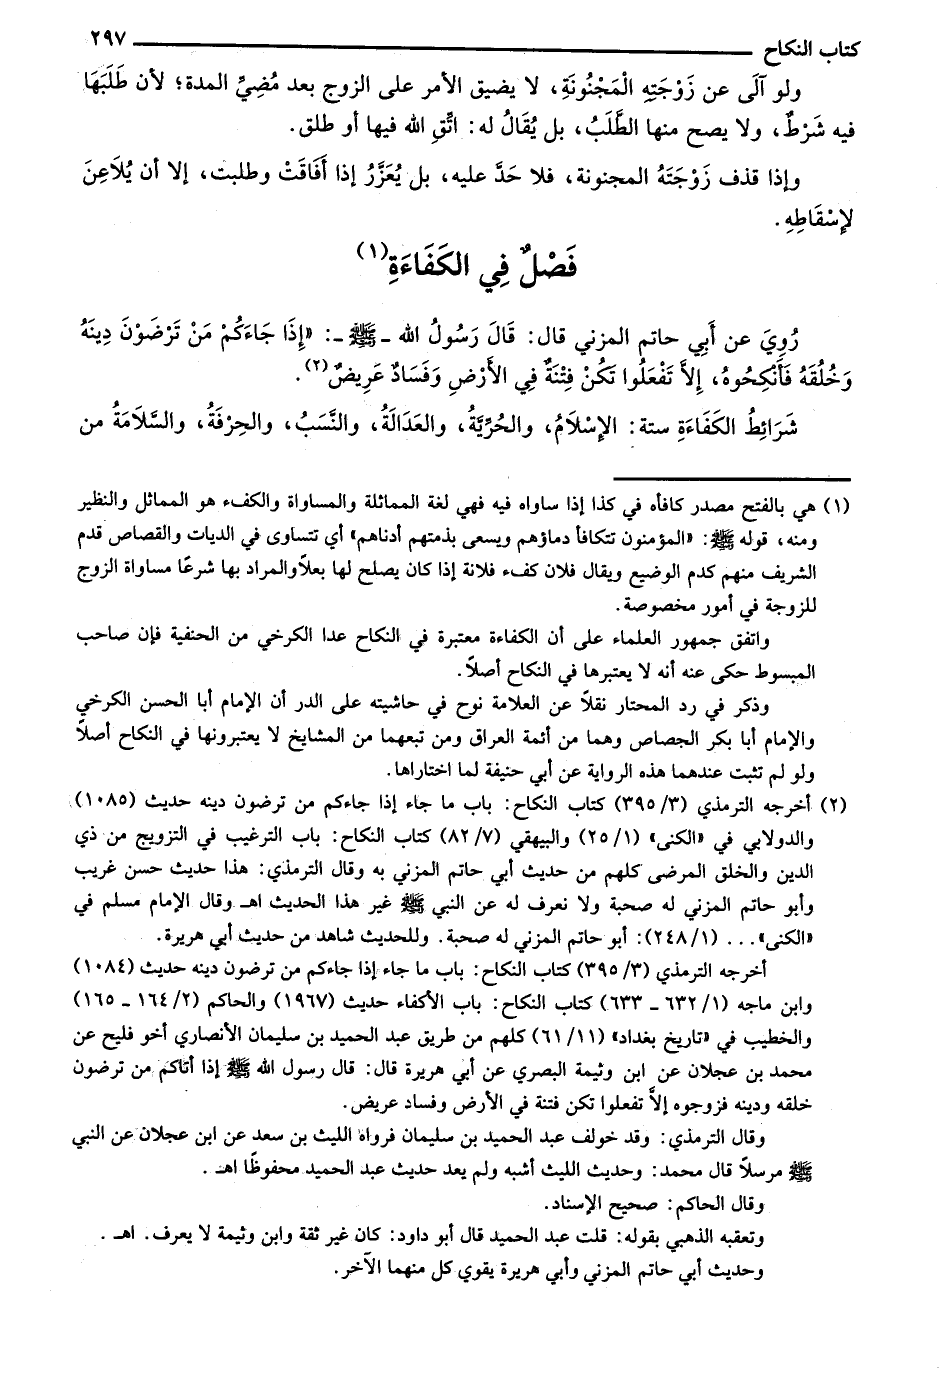 كتاب النكاح ٢٩٧
ولو آلَى عن زَوْجَتِهِ الْمَجْنُونَةِ، لا يضيق الأمر على الزوج بعد مُضِيِّ المدة؛ لأن طَلَبَهَا
فيه شَرْطٌ، ولا يصح منها الطَّلَبُ، بل يُقَالُ له: اتَّقِ الله فيها أو طلق.
وإذا قذف زَوْجَتَهُ المجنونة، فلا حَدَّ عليه، بل يُعَزَّرُ إذا أَفَاقَتْ وطلبت، إلا أن يُلاَعِنَ
لإِسْقَاطِهِ.
فَصْلٌ فِي الكَفَاءَةِ(١)
رُوِيَ عن أَبِي حاتم المزني قال: قَالَ رَسُولُ الله ـ ﷺ ـ: «إِذَا جَاءَكُمْ مَنْ تَرْضَوْنَ دِينَهُ
وَخُلُقَهُ فَأَنْكِحُوهُ، إِلاَّ تَفْعَلُوا تَكُنْ فِتْنَةٌ فِي الأَرْضِ وَفَسَادٌ عَرِيضٌ(٢).
شَرَائِطُ الكَفَاءَةِ ستة: الإِسْلاَمُ، والحُرِّيَّةُ، والعَدَالَةُ، والنَّسَبُ، والحِرْفَةُ، والسَّلاَمَةُ من
(١) هي بالفتح مصدر كافأه في كذا إذا ساواه فيه فهي لغة المماثلة والمساواة والكفء هو المماثل والنظير
ومنه، قوله ﷺ: «المؤمنون تتكافأ دماؤهم ويسعى بذمتهم أدناهم» أي تتساوى في الديات والقصاص قدم
الشريف منهم كدم الوضيع ويقال فلان كفء فلانة إذا كان يصلح لها بعلاً والمراد بها شرعًا مساواة الزوج
للزوجة في أمور مخصوصة.
واتفق جمهور العلماء على أن الكفاءة معتبرة في النكاح عدا الكرخي من الحنفية فإن صاحب
المبسوط حكى عنه أنه لا يعتبرها في النكاح أصلاً.
وذكر في رد المحتار نقلاً عن العلامة نوح في حاشيته على الدر أن الإمام أبا الحسن الكرخي
والإمام أبا بكر الجصاص وهما من أئمة العراق ومن تبعهما من المشايخ لا يعتبرونها في النكاح أصلاً
ولو لم تثبت عندهما هذه الرواية عن أبي حنيفة لما اختاراها.
(٢) أخرجه الترمذي (٣/ ٣٩٥) كتاب النكاح: باب ما جاء إذا جاءكم من ترضون دينه حديث (١٠٨٥)
والدولابي في «الكنى» (١/ ٢٥) والبيهقي (٧/ ٨٢) كتاب النكاح: باب الترغيب في التزويج من ذي
الدين والخلق المرضى كلهم من حديث أبي حاتم المزني به وقال الترمذي: هذا حديث حسن غريب
وأبو حاتم المزني له صحبة ولا نعرف له عن النبي ﷺ غير هذا الحديث اهـ وقال الإمام مسلم في
«الكنى»... (١/ ٢٤٨): أبو حاتم المزني له صحبة. وللحديث شاهد من حديث أبي هريرة.
أخرجه الترمذي (٣/ ٣٩٥) كتاب النكاح: باب ما جاء إذا جاءكم من ترضون دينه حديث (١٠٨٤)
وابن ماجه (١/ ٦٣٢ ـ ٦٣٣) كتاب النكاح: باب الأكفاء حديث (١٩٦٧) والحاكم (٢/ ١٦٤ ـ ١٦٥)
والخطيب في «تاريخ بغداد» (١١/ ٦١) كلهم من طريق عبد الحميد بن سليمان الأنصاري أخو فليح عن
محمد بن عجلان عن ابن وثيمة البصري عن أبي هريرة قال: قال رسول الله ﷺ إذا أتاكم من ترضون
خلقه ودينه فزوجوه إلاَّ تفعلوا تكن فتنة في الأرض وفساد عريض.
وقال الترمذي: وقد خولف عبد الحميد بن سليمان فرواه الليث بن سعد عن ابن عجلان عن النبي
ﷺ مرسلاً قال محمد: وحديث الليث أشبه ولم يعد حديث عبد الحميد محفوظًا اهـ .
وقال الحاكم: صحيح الإسناد.
وتعقبه الذهبي بقوله: قلت عبد الحميد قال أبو داود: كان غير ثقة وابن وثيمة لا يعرف. اهـ .
وحديث أبي حاتم المزني وأبي هريرة يقوي كل منهما الآخر.